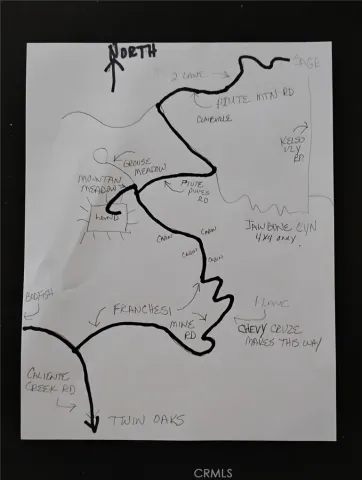 NORTH
2 LANE
SAGE
PIUTE MTN RD
KELSO
VLY
RD
GROUSE
MEADOW
MOUNTAIN
MEADOW
LAND
PIUTE
PINES
RD
JAWBONE CYN
4X4 ONLY
CABIN
CABIN
CABIN
CABIN
BODFISH
FRANCHESI
MINE
RD
1 LANE
CHEVY CRUZE
MAKES THIS WAY
CALIENTE
CREEK RD
TWIN OAKS
CRMLS